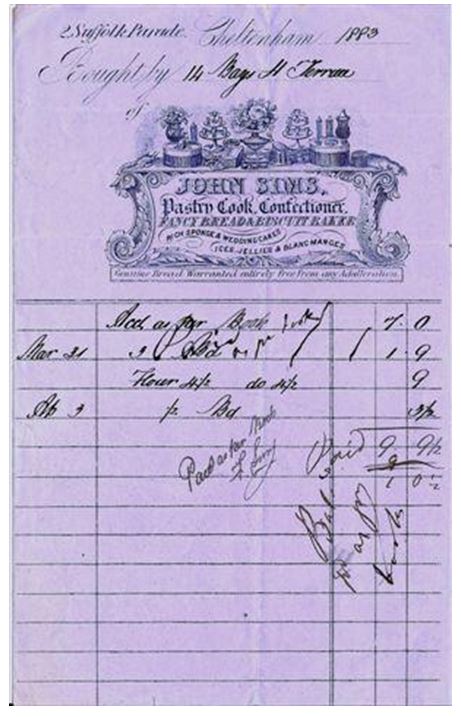 2 Suffolk Parade. Cheltenham 1893
Bought by 14 Bays H Terrace
of
JOHN SIMS,
Pastry Cook, Confectioner,
FANCY BREAD & BISCUIT BAKER
RICH SPONGE & WEDDING CAKES
ICES, JELLIES & BLANC MANGES
Genuine Bread Warranted entirely free from any Adulteration.
Acct as per Book 7 . 0
Mar 31 3 Bd 1 9
Flour 4½ do 4½ 9
Ap 3 ½ Bd 3½
Paid 9 9½
Paid as per Book
1 0½
Bal
as per